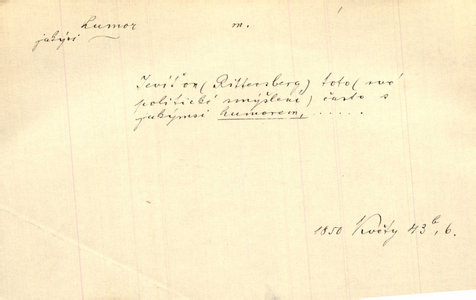 humor m.
jakýsi
Jevíť on (Rittersberg) toto (své
politické smýšlení) často s
jakýmsi humorem, ......
1850 Květy 43 b, 6.